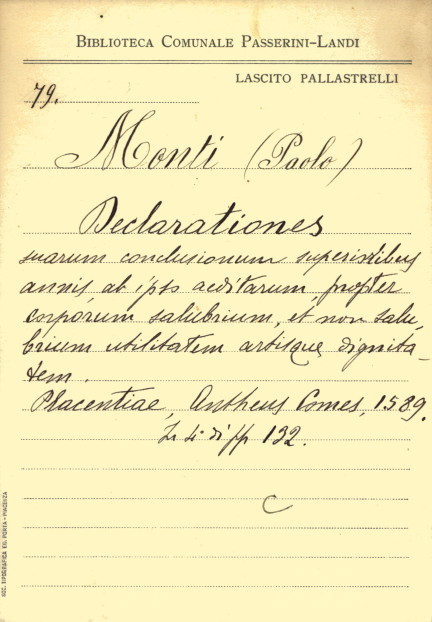 BIBLIOTECA COMUNALE PASSERINI-LANDI
LASCITO PALLASTRELLI
79.
Monti (Paolo)
Declarationes
suarum conclusionum superioribus
annis, ab ipso aeditarum, propter
corporum salubrium, et non salu-
brium utilitatem artisque dignita-
tem.
Placentiae, Antheus Comes, 1589.
In 4° di pp 132.
C
SOC. TIPOGRAFICA ED. PORTA - PIACENZA